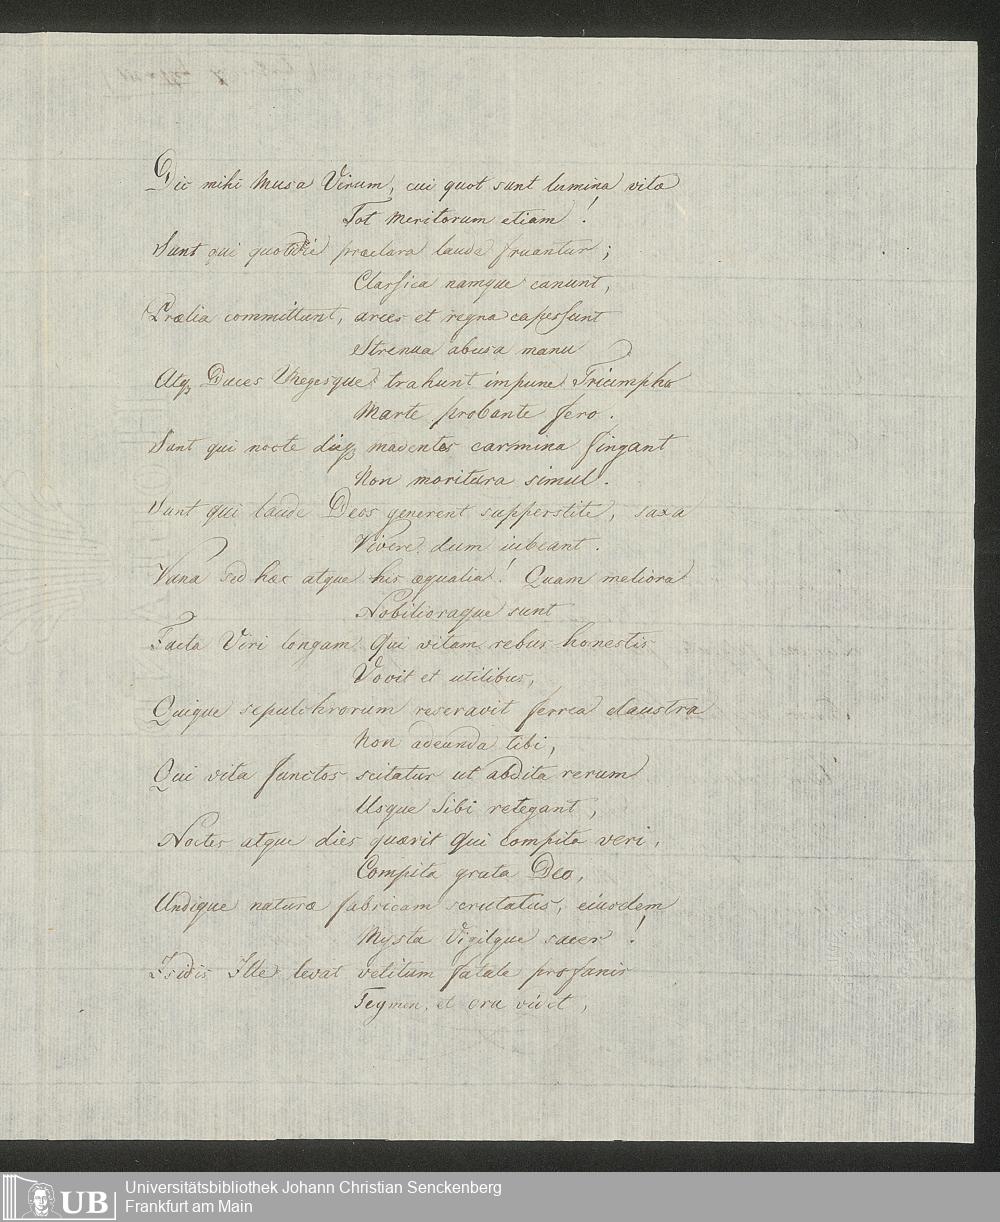 Dic mihi Musa Virum, cui quot sunt lumina vitæ
Tot meritorum etiam!
Sunt qui quotidie præclara laude fruantur;
Classica namque canunt,
Prælia committunt, arces et regna capessunt
Strenua abusa manu
Atq Duces Regesque trahunt impune Triumpho
Marte probante fero.
Sunt qui nocte dieq madentes carmina fingant
Non moritura simul.
Sunt qui laude Deos generent supperstite, saxa
Vivere dum iubeant.
Vana sed hæc atque his æqualia! Quam meliora
Nobilioraque sunt
Facta Viri longam Qui vitam rebus honestis
Vovit et utilibus,
Quique sepulchrorum reseravit ferrea claustra
Non adeunda tibi,
Qui vita functos scitatur ut abdita rerum
Usque Sibi retegant,
Noctes atque dies quærit Qui Compita veri,
Compita grata Deo,
Undique naturæ fabricam scrutatus, eiusdem
Mysta Vigilque sacer!
Isidis Ille levat vetitum fatale profanis
Tegmen, et ora vidit,
UB
Universitätsbibliothek Johann Christian Senckenberg
Frankfurt am Main